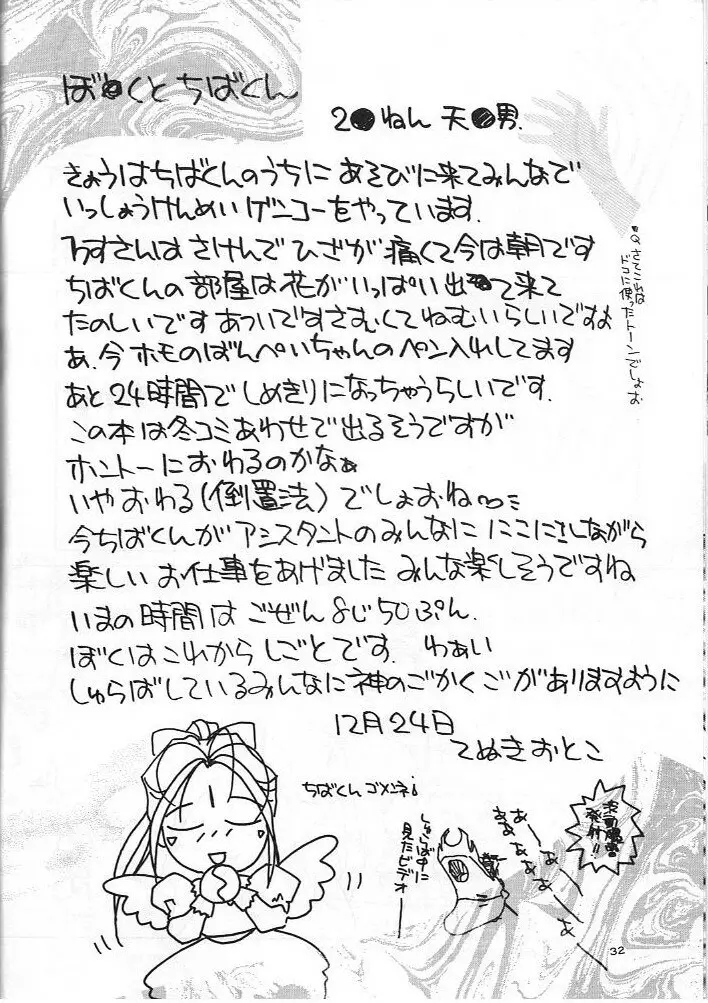 ぼ●くとちばくん
2●ねん 天●男.
きょうはちばくんのうちに あそびに来てみんなで
いっしょうけんめい ゲンコーをやっています.
さんは さけんで ひざが 痛くて今は朝です
ちばくんの部屋は花がいっぱい出て来て
たのしいです あついですさむくてねむいらしいですよ
あ、今 ホモのばんぺいちゃんのペン入れしてます
あと24時間でしめきりになっちゃうらしいです.
この本は冬コミあわせで出るそうですが
ホントーにおわるのかなぁ
いやおわる(倒置法)でしょおね
今ちばくんが アシスタントのみんなに にこにこしながら
楽しい お仕事をあげました みんな楽しそうですね
いまの時間は ごぜん 8じ50ぷん.
ぼくはこれから しごとです. わぁい
しゅらばしているみんなに神のごかくごがありますように
12月24日
てぬきおとこ
Q さてこれは
ドコに使ったトーンでしょお
ちばくんゴメンネ!
しゅらば中に
見たビデオ
あーああ
発射!!
32